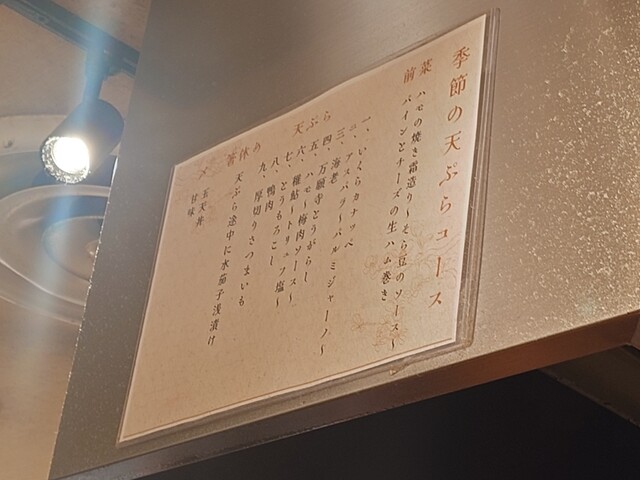 季節の天ぷらコース
前菜
ハモの焼き霜造り〜そら豆のソース〜
パインとチーズの生ハム巻き
天ぷら
一、いくらカナッペ
二、アスパラ〜パルミジャーノ〜
三、海老
四、万願寺とうがらし
五、ハモ〜梅肉ソース〜
六、稚鮎〜トリュフ塩〜
七、とうもろこし
八、鴨肉
九、厚切りさつまいも
箸休め
天ぷら途中に水茄子浅漬け
〆
天丼
甘味